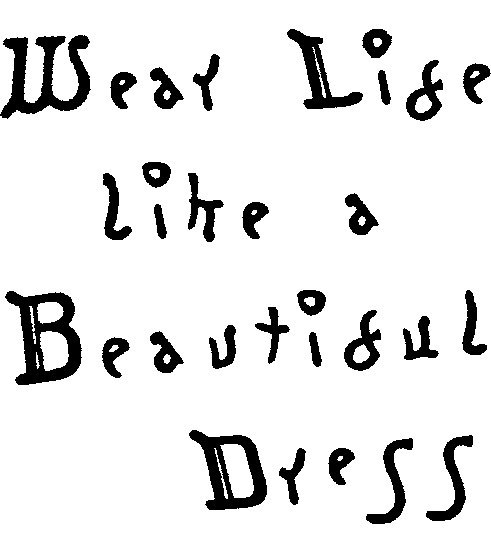 Wear Life
like a
Beautiful
Dress